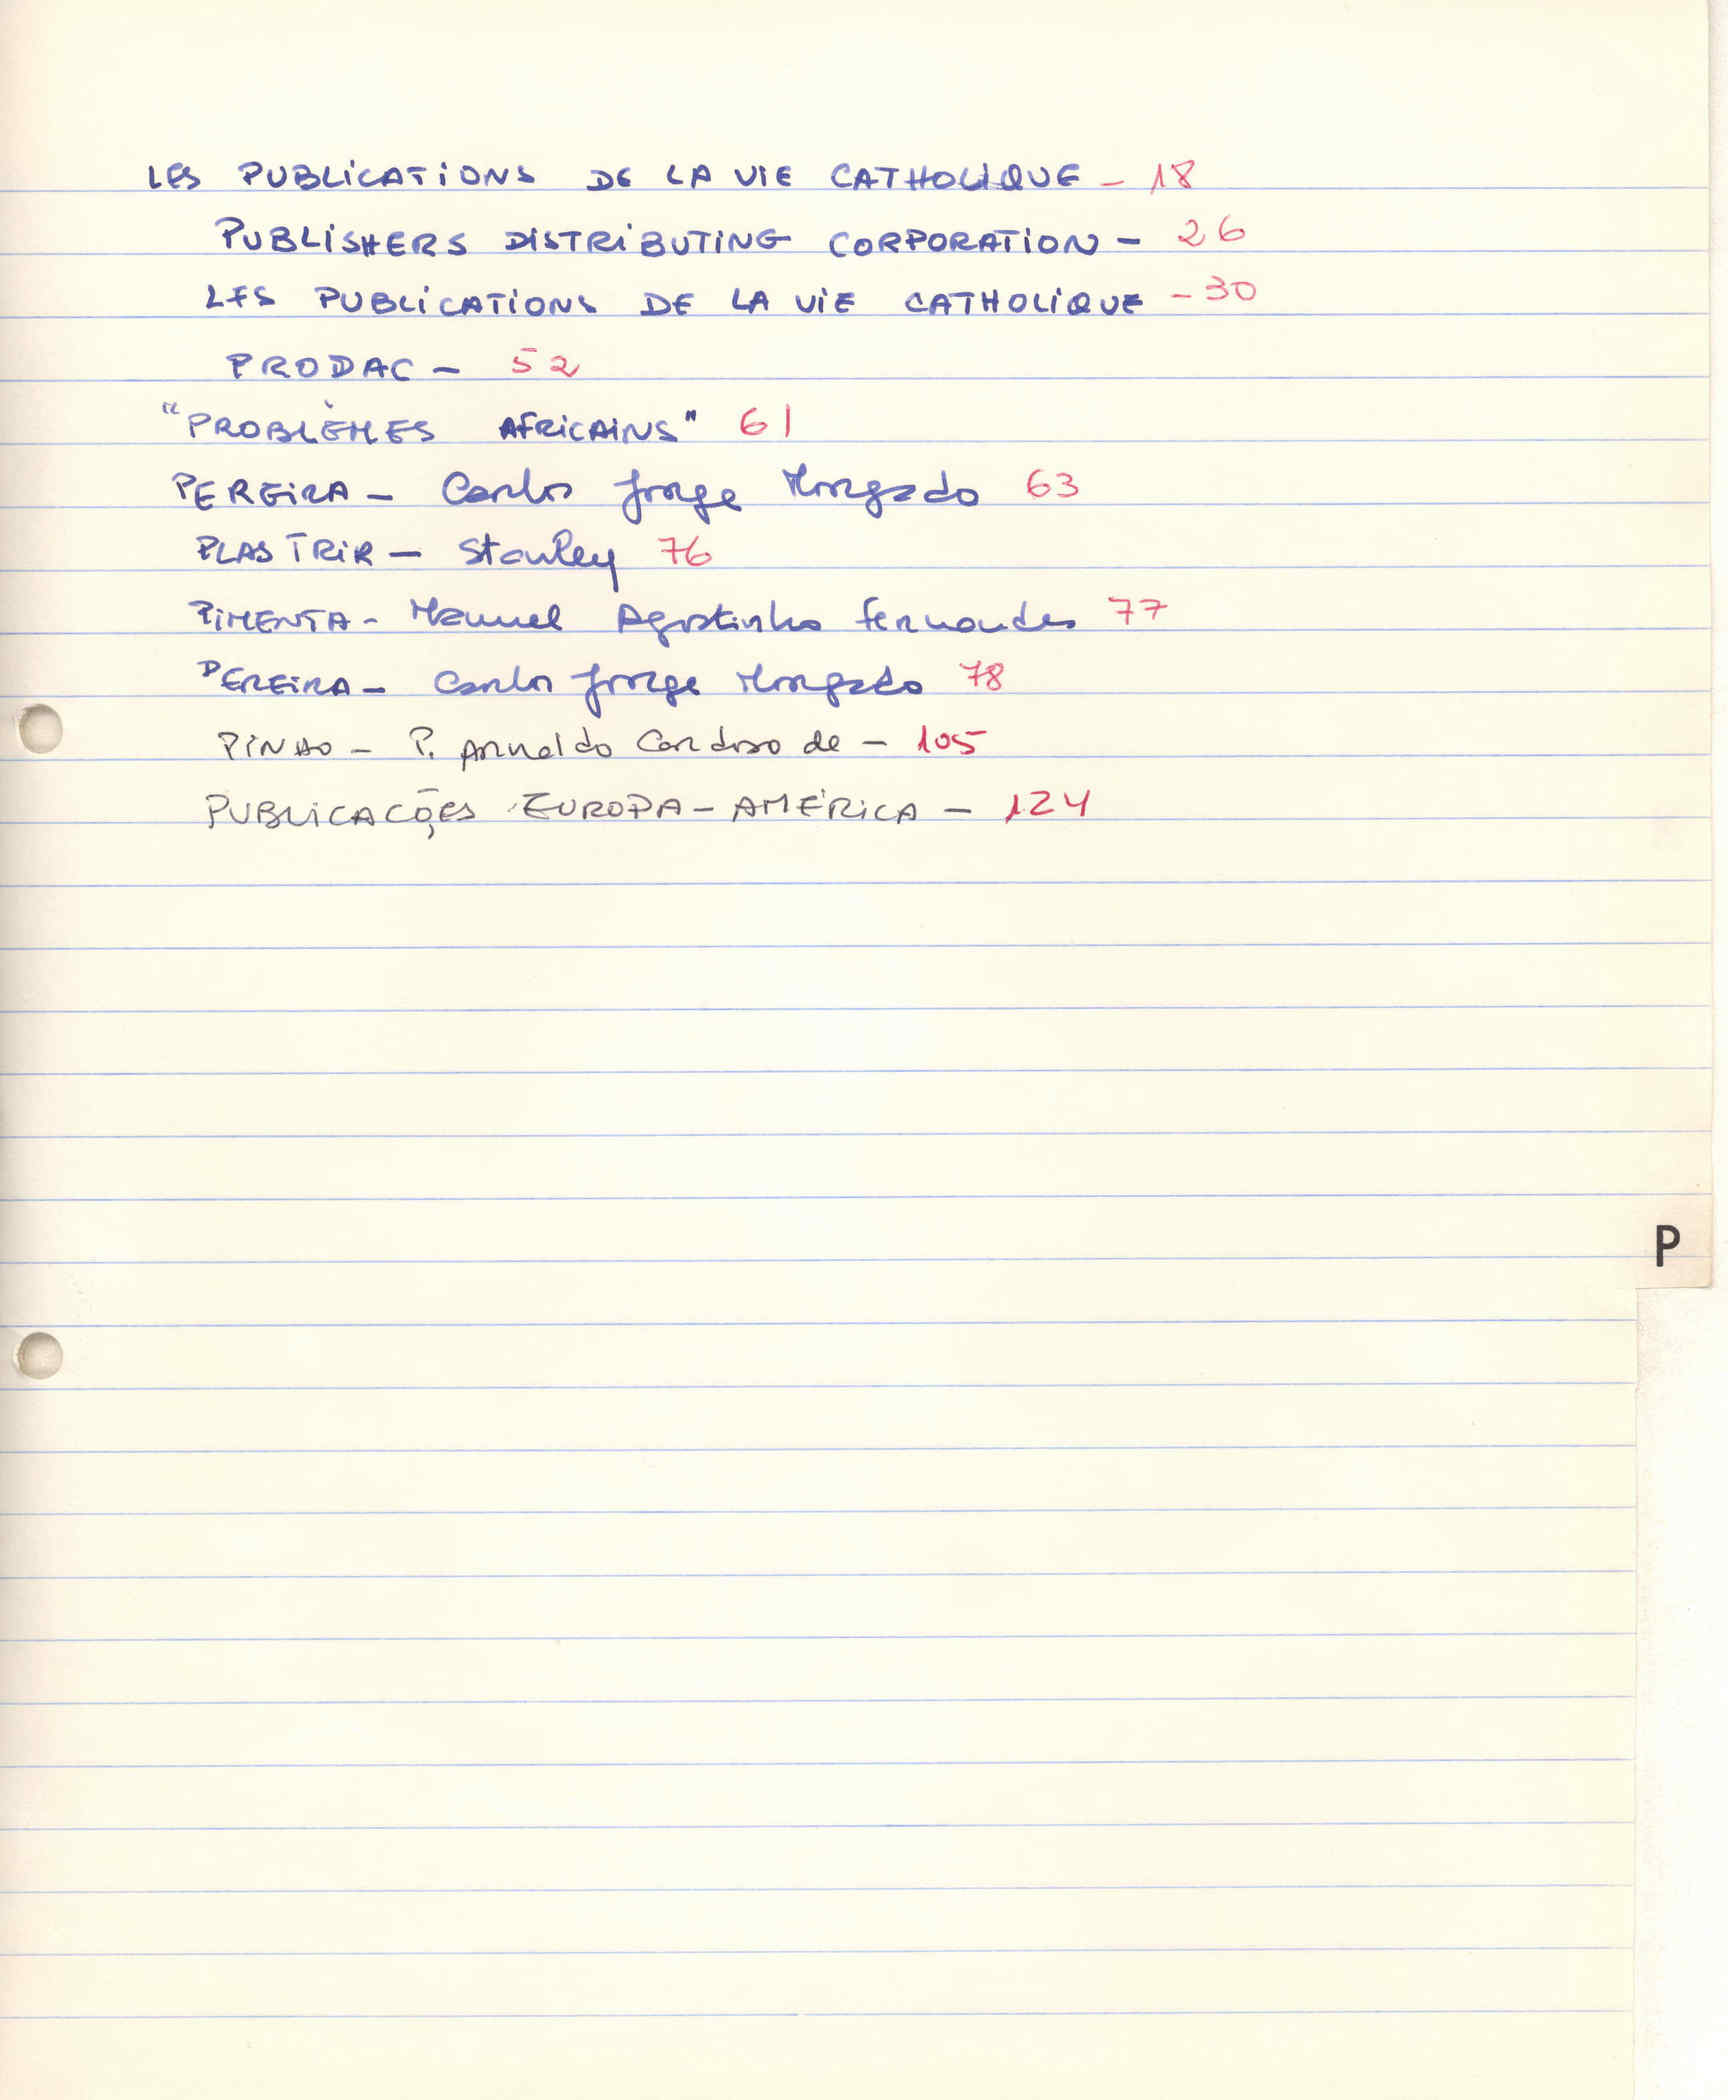 LES PUBLICATIONS DE LA VIE CATHOLIQUE - 18
PUBLISHERS DISTRIBUTING CORPORATION - 26
LES PUBLICATIONS DE LA VIE CATHOLIQUE - 30
PRODAC - 52
"PROBLÈMES AFRICAINS" 61
PEREIRA - Carlos Jorge Morgado 63
PLASTRIR - Stanley 76
PIMENTA - Manuel Agostinho Fernandes 77
PEREIRA - Carlos Jorge Morgado 78
PINHO - P. Arnaldo Cardoso de - 105
PUBLICAÇÕES EUROPA-AMÉRICA - 124
P